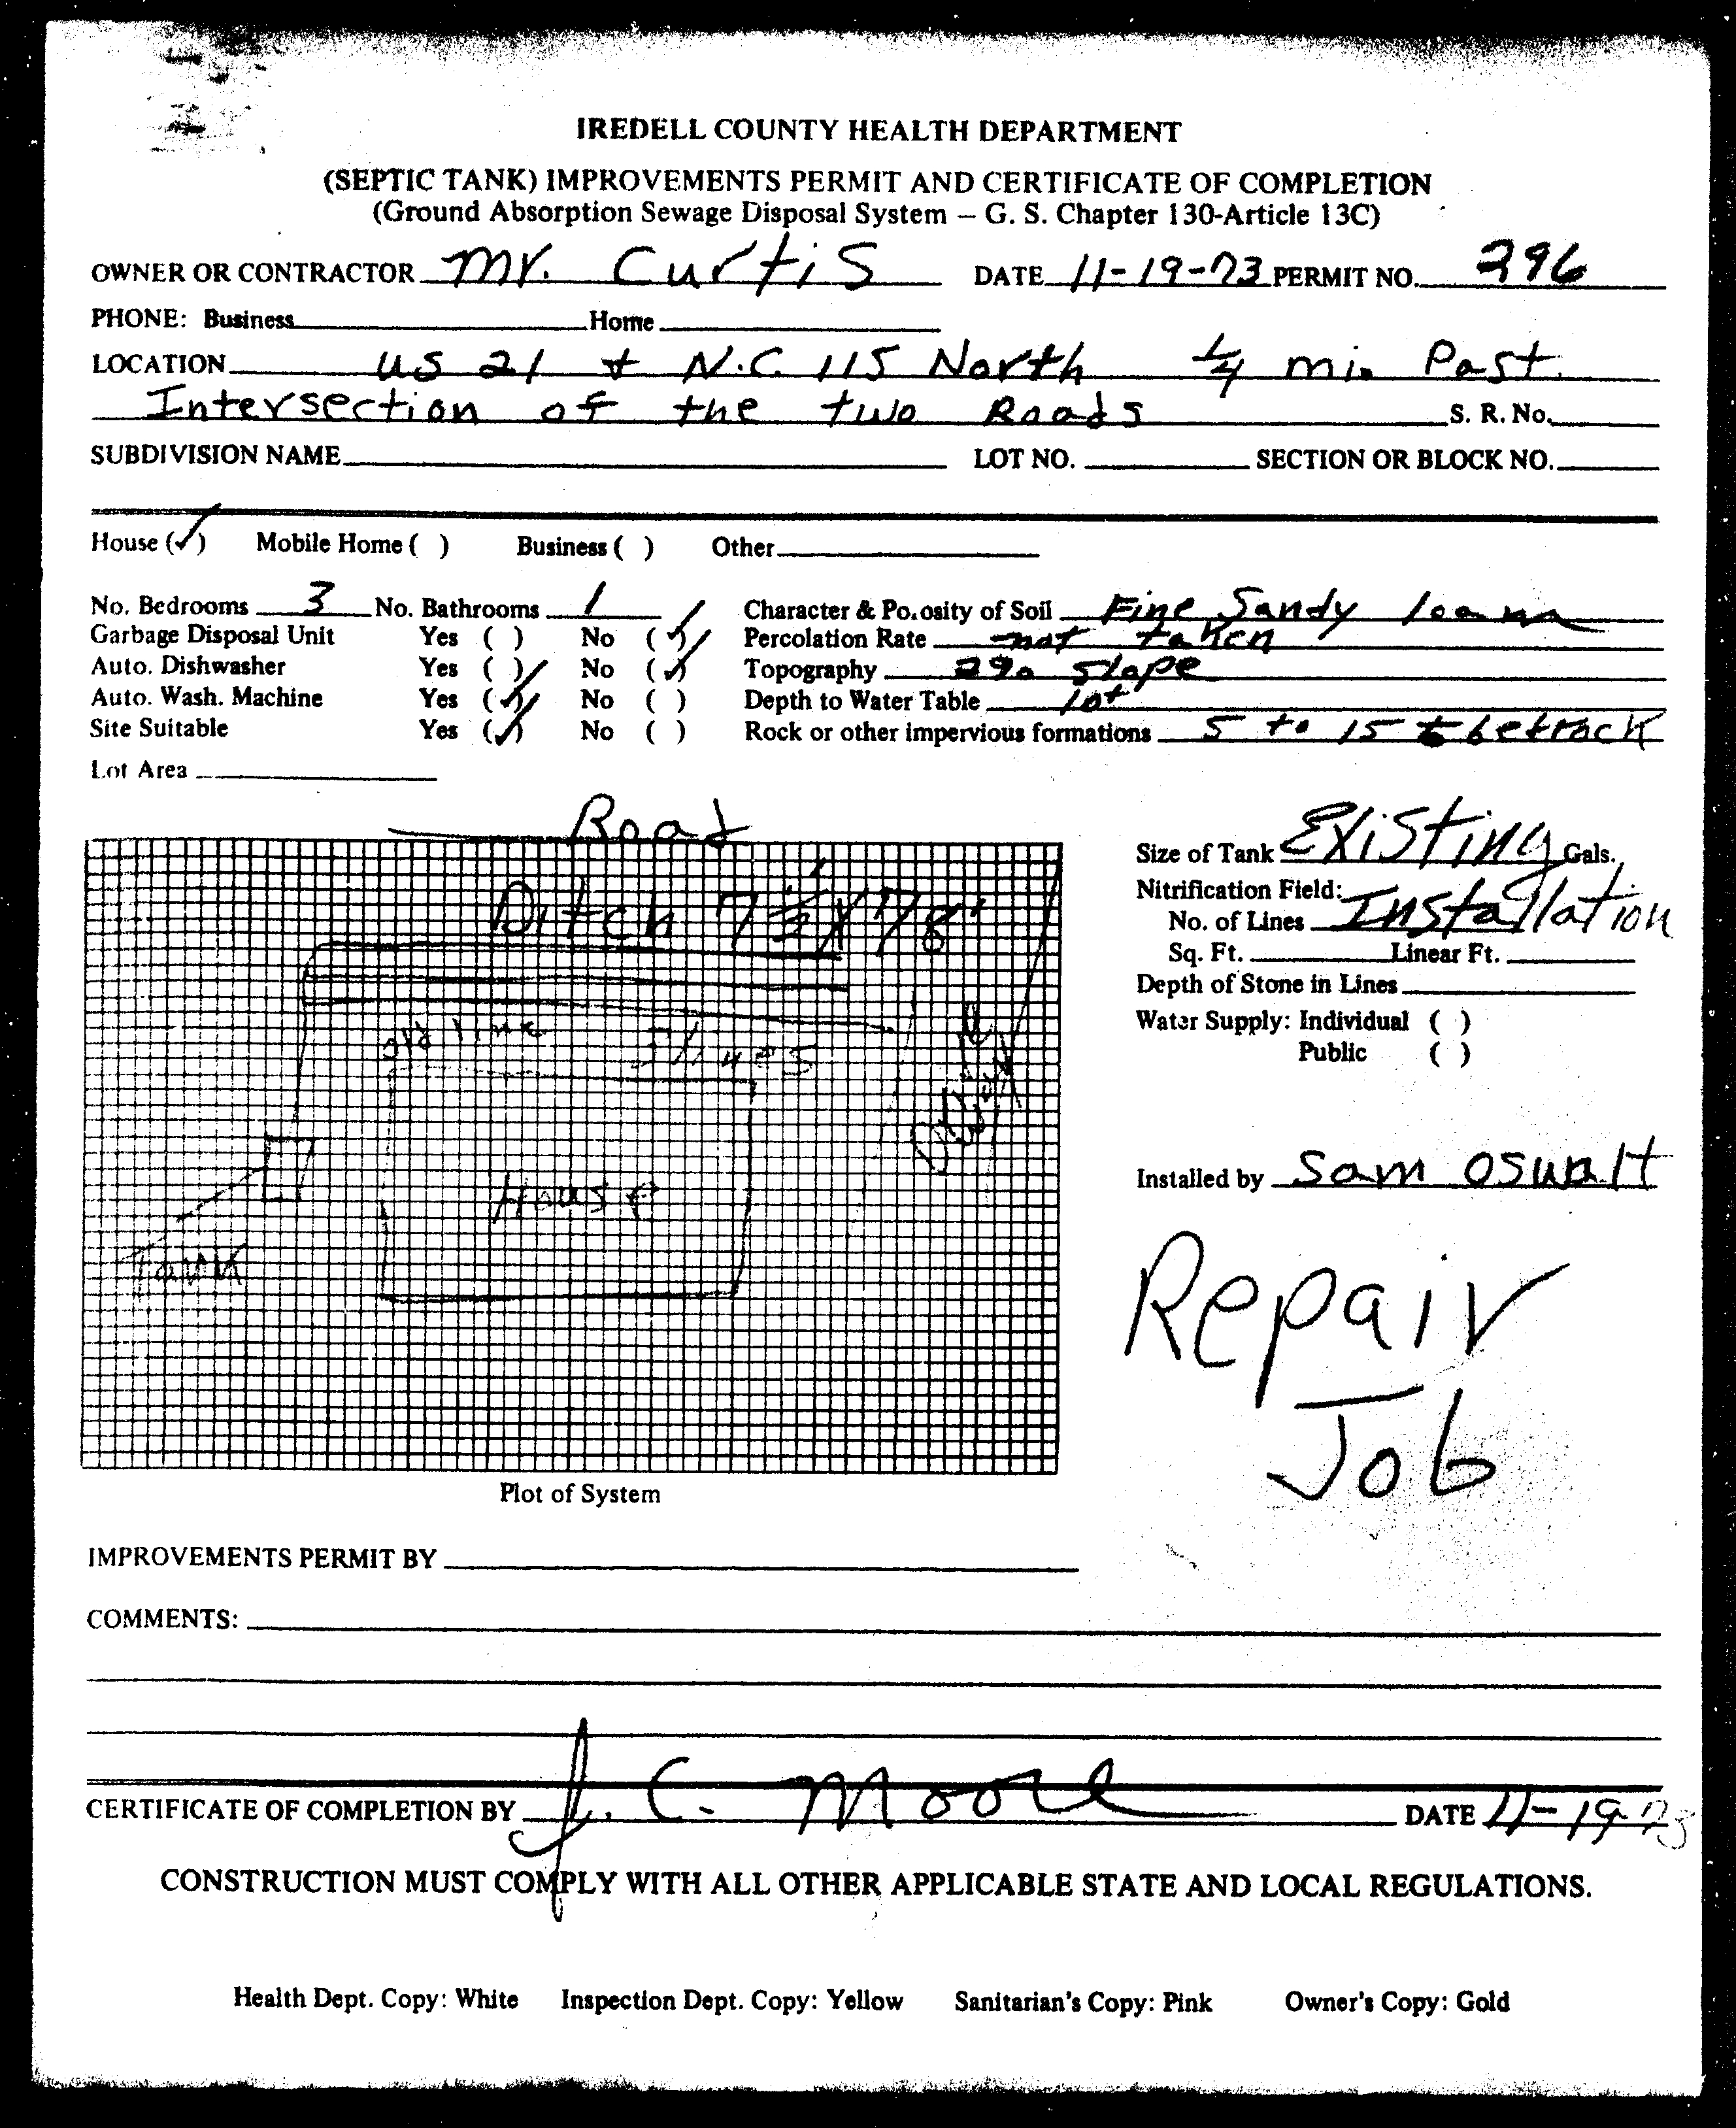 IREDELL COUNTY HEALTH DEPARTMENT
(SEPTIC TANK) IMPROVEMENTS PERMIT AND CERTIFICATE OF COMPLETION
(Ground Absorption Sewage Disposal System – G. S. Chapter 130-Article 13C)
OWNER OR CONTRACTOR Mr. Curtis DATE 11-19-73 PERMIT NO. 296
PHONE: Business Home
LOCATION US 21 + N.C. 115 North 1/4 mi. Past
Intersection of the two Roads S. R. No.
SUBDIVISION NAME LOT NO. SECTION OR BLOCK NO.
House (✓) Mobile Home ( ) Business ( ) Other
No. Bedrooms 3 No. Bathrooms 1 Character & Porosity of Soil Fine Sandy loam
Garbage Disposal Unit Yes ( ) No (✓) Percolation Rate not taken
Auto. Dishwasher Yes ( ) No (✓) Topography 2% Slope
Auto. Wash. Machine Yes (✓) No ( ) Depth to Water Table 10+
Site Suitable Yes (✓) No ( ) Rock or other impervious formations 5 to 15 to betrock
Lot Area
Road
Size of Tank Existing Gals.
Nitrification Field:
No. of Lines Installation
Sq. Ft. Linear Ft.
Depth of Stone in Lines
Water Supply: Individual ( )
Public ( )
Ditch X 78'
old line
House
Tank
Installed by Sam Oswalt
Repair
Job
Plot of System
IMPROVEMENTS PERMIT BY
COMMENTS:
CERTIFICATE OF COMPLETION BY J. C. Moore DATE 11-19-73
CONSTRUCTION MUST COMPLY WITH ALL OTHER APPLICABLE STATE AND LOCAL REGULATIONS.
Health Dept. Copy: White Inspection Dept. Copy: Yellow Sanitarian's Copy: Pink Owner's Copy: Gold